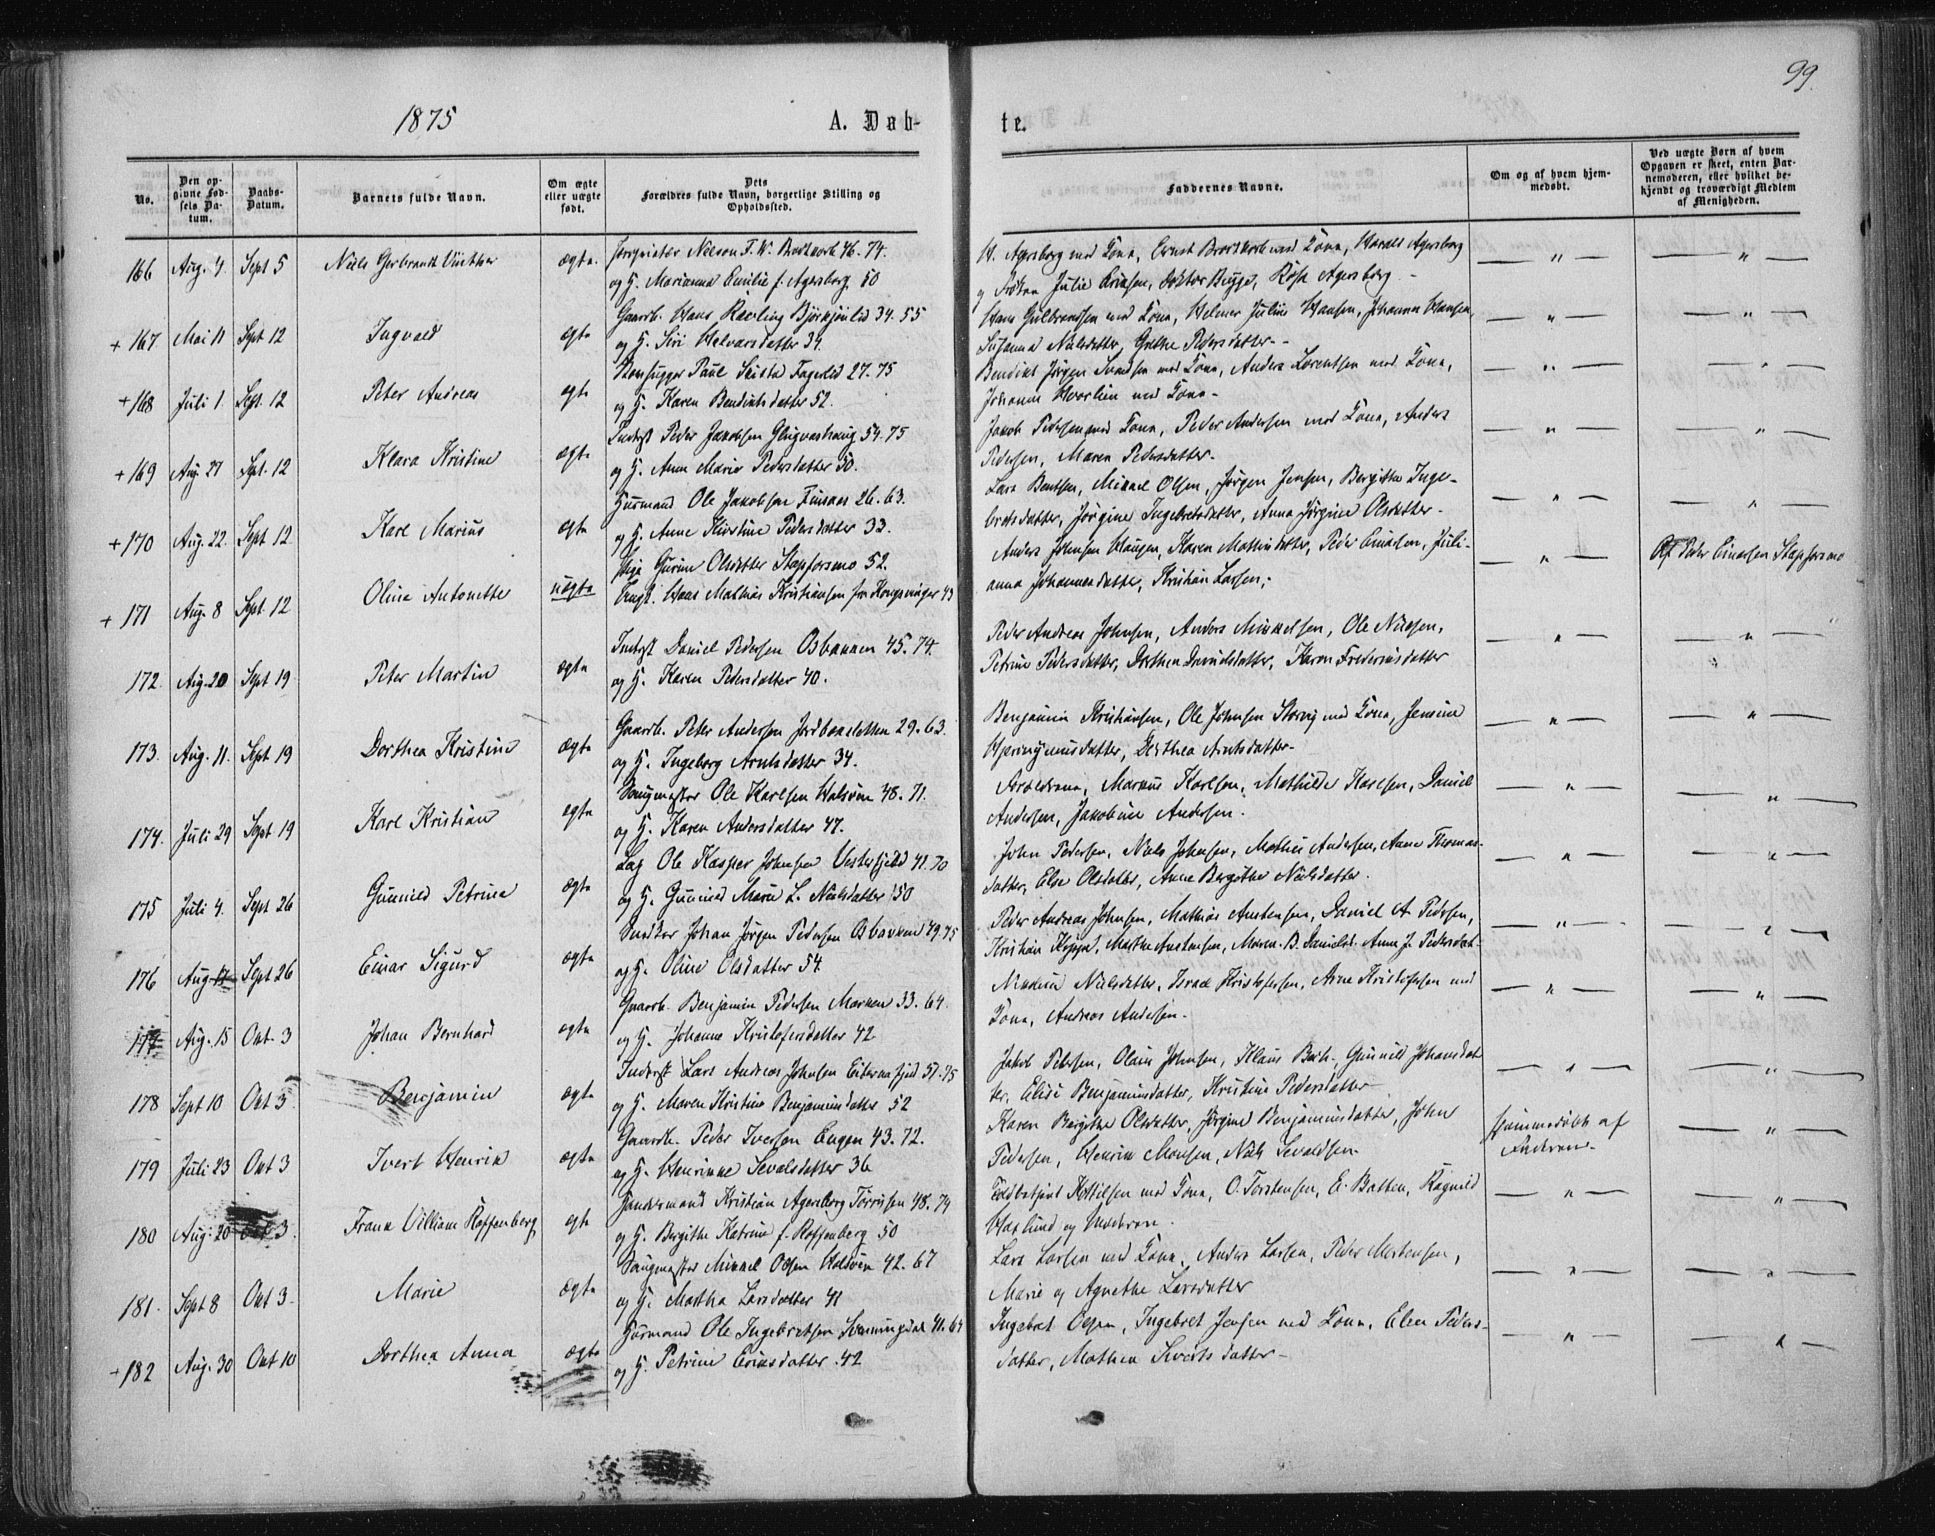 99.
1875
A. Døb-
te.
No.
Den op-
givne Fød-
sels Da-
tum.
Daabs-
Datum.
Barnets fulde Navn.
Om ægte
eller uægte
født.
Dets
Forældres fulde Navn, borgerlige Stilling og
Opholdssted.
Faddernes Navne.
Om og af hvem hjem-
medøbt.
Ved uægte Børn af hvem
Opgaven er skeet, enten Bar-
nemoderen, eller hvilket be-
kjendt og troværdigt Medlem
af Menigheden.
166 Aug. 4. Sept 5 ægte.
og H. Marianna Emilie f. Agersborg. 50
og Julie Doktor Bugge, Rosa Agersborg -
+ 167. Mai 11 Sept 12 Ingvald ægte
Gaardb. Hans 34. 55
og H. Siri Halvarsdatter 34.
Hans Gulbrandsen med Kona, Helmer Julius Hansen, Johanna Hansen,
Susanna Nielsdatter, Grethe Pedersdatter -
+ 168 Juli 1. Sept. 12 Peter Andreas ægte
Paul Fagerlid 27. 75
og H. Karen Bendiktsdatter 52.
Bendikt Jørgen Svendsen med Kona, Anders Lorentsen med Kona,
Johannes med Kona -
+ 169 Aug. 27 Sept. 12 Klara Kristine ægte
Inderst Peder Jakobsen 54. 75
og H. Anne Marie Pedersdatter 50.
Jakob Pedersen med Kona, Peder Andersen med Kona, Anders
Pedersen, Maren Pedersdatter -
+ 170 Aug. 22. Sept 12 Karl Marius ægte
Husmand Ole Jakobsen 26. 63.
og H. Anne Kirstine Pedersdatter 33.
Lars Bentsen, Mikael Olsen, Jørgen Jensen, Bergitha Inge-
bretsdatter, Jørgine Ingebretsdatter, Anna Jørgine Olsdatter -
+ 171 Aug. 8 Sept. 12 Olina Antonette uægte
Pige Gurine Olsdatter Stapforsmo 52.
Ungk. Hans Mathias Kristiansen fra Kongsvinger 43
Anders Johnsen Haugen, Karen Mathisdatter, Peder Einarsen, Juli-
anna Johannesdatter, Kristian Larsen,
Af Peder Einarsen Stapforsmo
172. Aug. 20 Sept 19 Peter Martin ægte
Inderst Daniel Pedersen Osbakken 45. 74.
og H. Karen Pedersdatter 40.
Peder Andreas Johnsen, Anders Mikkelsen, Ole Nielsen,
Petrine Pedersdatter, Dorthea Danielsdatter, Karen Frederiksdatter
173. Aug. 11. Sept 19 Dorthea Kristine ægte
Gaardb. Peter Andersen 29. 63.
og H. Ingeborg Arntsdatter 34.
Benjamin Kristiansen, Ole Johnsen Storvig med Kona, Jensine
Hieronymusdatter, Dorthea Arntsdatter -
174. Juli 29 Sept 19 Karl Kristian ægte
Ole Karlsen Halsøen 48. 71.
og H. Karen Andersdatter 47.
Forældrene, Markus Karlsen, Mathilde Karlsen, Daniel
Andersen, Jakobine Andersen.
175 Juli 4. Sept 26 Gunnild Petrine ægte
Ole Kasper Johnsen Vesterfjeld 41. 70
og H. Gunnild Marie L. Nielsdatter 50
John Pedersen, Niels Johnsen, Mathias Andersen, Anne Thomas-
datter, Else Olsdatter, Anne Bergithe Nielsdatter.
176 Aug. 17 Sept 26 Einar Sigurd ægte
Snedker Johan Jørgen Pedersen Osbakken 49. 75
og H. Oline Olsdatter 54.
Peder Andreas Johnsen, Mathias Austensen, Daniel A. Pedersen,
Kristian Marthe Austensen, Maren B. Danielsd. Anne J. Pedersdat-
177 Aug. 15 Okt. 3 Johan Bernhard ægte
Gaardb. Benjamin Pedersen Marken 33. 64.
og H. Johanna Kristofersdatter 42
Nielsdatter, Israel Kristofersen, Arne Kristofersen med
Kona, Andreas Andersen.
178 Sept 10 Okt 3 Benjamin ægte
Inderst Lars Andreas Johnsen 51. 75
og H. Maren Kristine Benjaminsdatter 52
Jakob Petersen, Olaus Johnsen, Klaus Bech, Gunnild Johansdat
ter, Elise Benjaminsdatter, Kristine Pedersdatter
179 Juli 23 Okt 3 Ivert Henrik ægte
Gaardb. Peder Iversen Engen 43. 72.
og H. Henrikke Sevaldsdatter 36
Karen Bergithe Olsdatter, Jørgine Benjaminsdatter, John
Pedersen, Henrik Monsen, Niels Sevaldsen.
Hjemmedøbt af
Faderen.
180 Aug. 20 Okt 3. Frants William Roffenberg ægte
Handelsmand Kristian Agersborg Torrissen 48. 74
og H. Bergithe Katrine f. Roffenberg 50
Ketilsen med Kona, O. Torstensen, E. Batten, Ragnild
Haslund og Moderen.
181. Sept 8 Okt 3. Marie ægte
Mikael Olsen Halsøen 42. 67
og H. Martha Larsdatter 41
Lars Larsen med Kona, Anders Larsen, Peder Mortensen,
Marie og Agnethe Larsdatter
+ 182 Aug. 30 Okt 10 Dorthea Anna ægte
Husmand Ole Ingebretsen Svenningdal 41. 64
og H. Petrine Eriksdatter. 42
Ingebret Olsen, Ingebret Jensen med Kona, Elen Peders-
datter, Mathea Sivertsdatter -